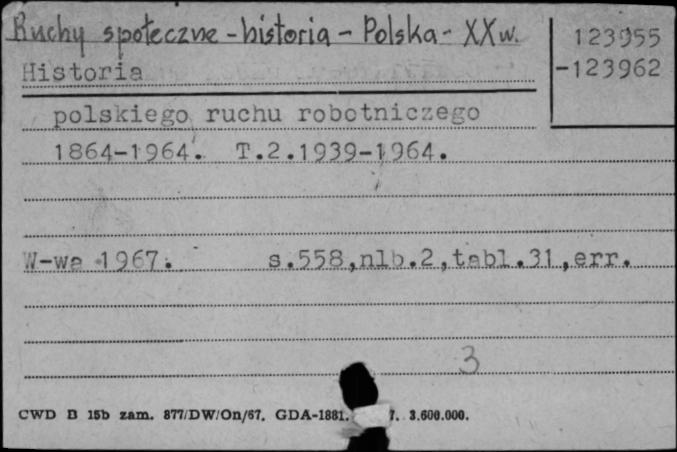 Ruchy społeczne - historia - Polska - XX w.
123955
-123962
Historia
polskiego ruchu robotniczego
1864-1964. T.2.1939-1964.
W-wa 1967. s.558,nlb.2,tabl.31,err.
3
CWD B 15b zam. 877/DW/On/67. GDA-1881. 7. 3.600.000.